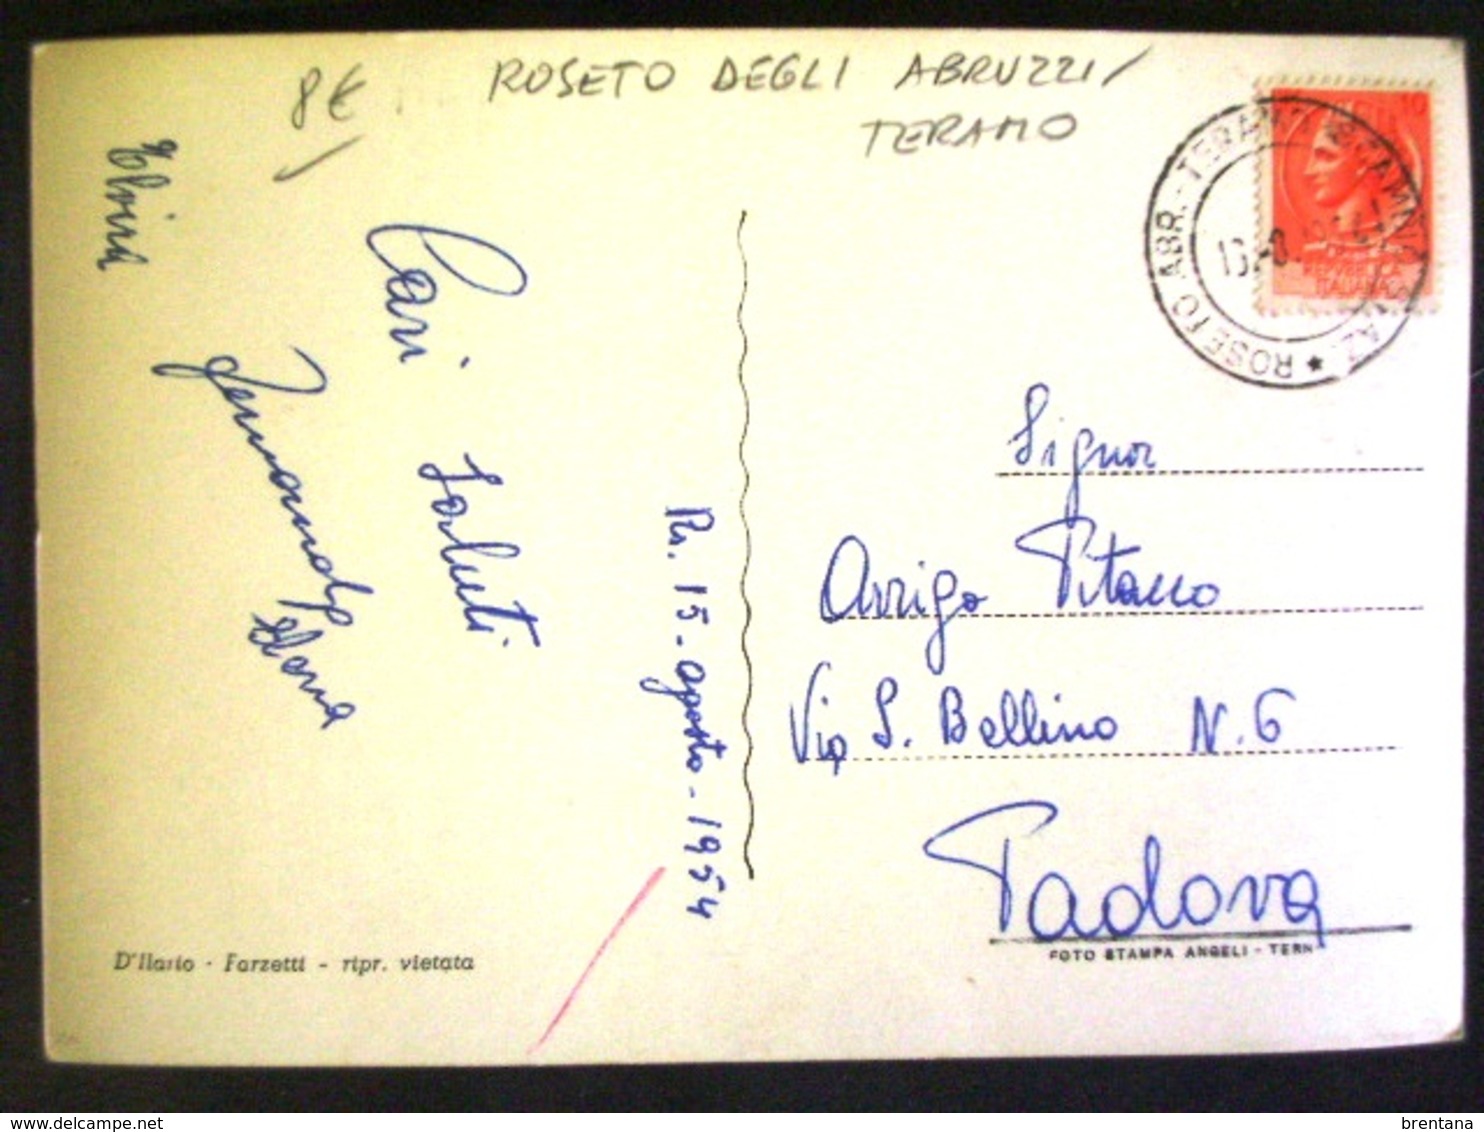 8€
ROSETO DEGLI ABRUZZI /
TERAMO
Elvira
Cari
Saluti
Fernando
Rs. 15 - agosto - 1954
ROSETO ABR. - TERAMO
REPVBBLICA
ITALIANA
Signor
Arrigo Pitacco
Via S. Bellino N. 6
Padova
D'Ilario - Farzetti - ripr. vietata
FOTO STAMPA ANGELI - TERNI
brentana